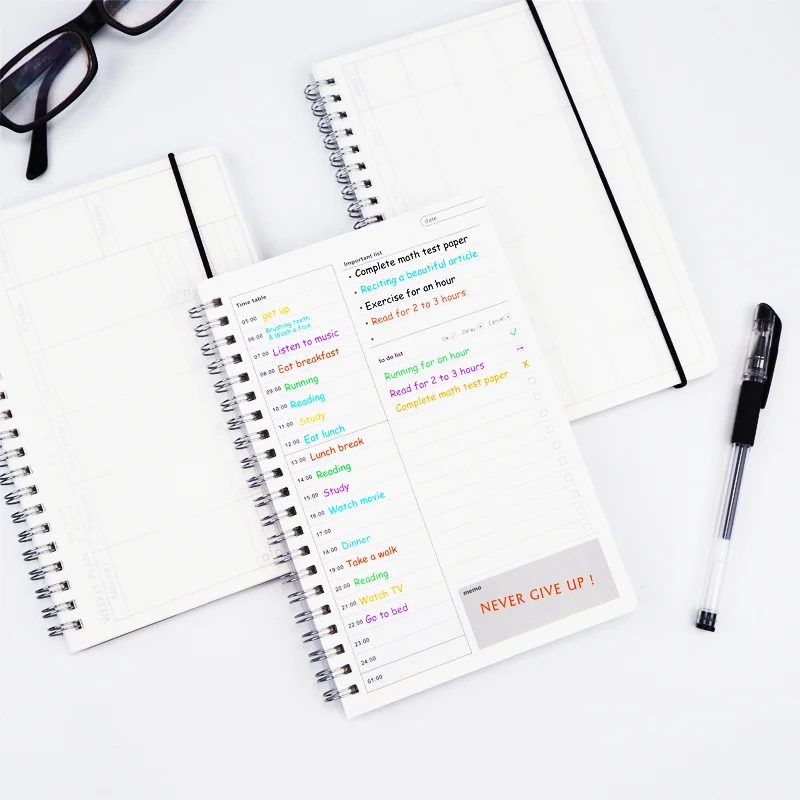 date:
Important list
• Complete math test paper
• Reciting a beautiful article
• Exercise for an hour
• Read for 2 to 3 hours
•
Time table
05:00 get up
06:00 Brushing teeth
& Wash a face
07:00 Listen to music
08:00 Eat breakfast
09:00 Running
10:00 Reading
11:00 Study
12:00 Eat lunch
13:00 Lunch break
14:00 Reading
15:00 Study
16:00 Watch movie
17:00
18:00 Dinner
19:00 Take a walk
20:00 Reading
21:00 Watch TV
22:00 Go to bed
23:00
24:00
01:00
Ok Delay Cancel
to do list
Running for an hour ✓
Read for 2 to 3 hours →
Complete math test paper X
memo
NEVER GIVE UP !